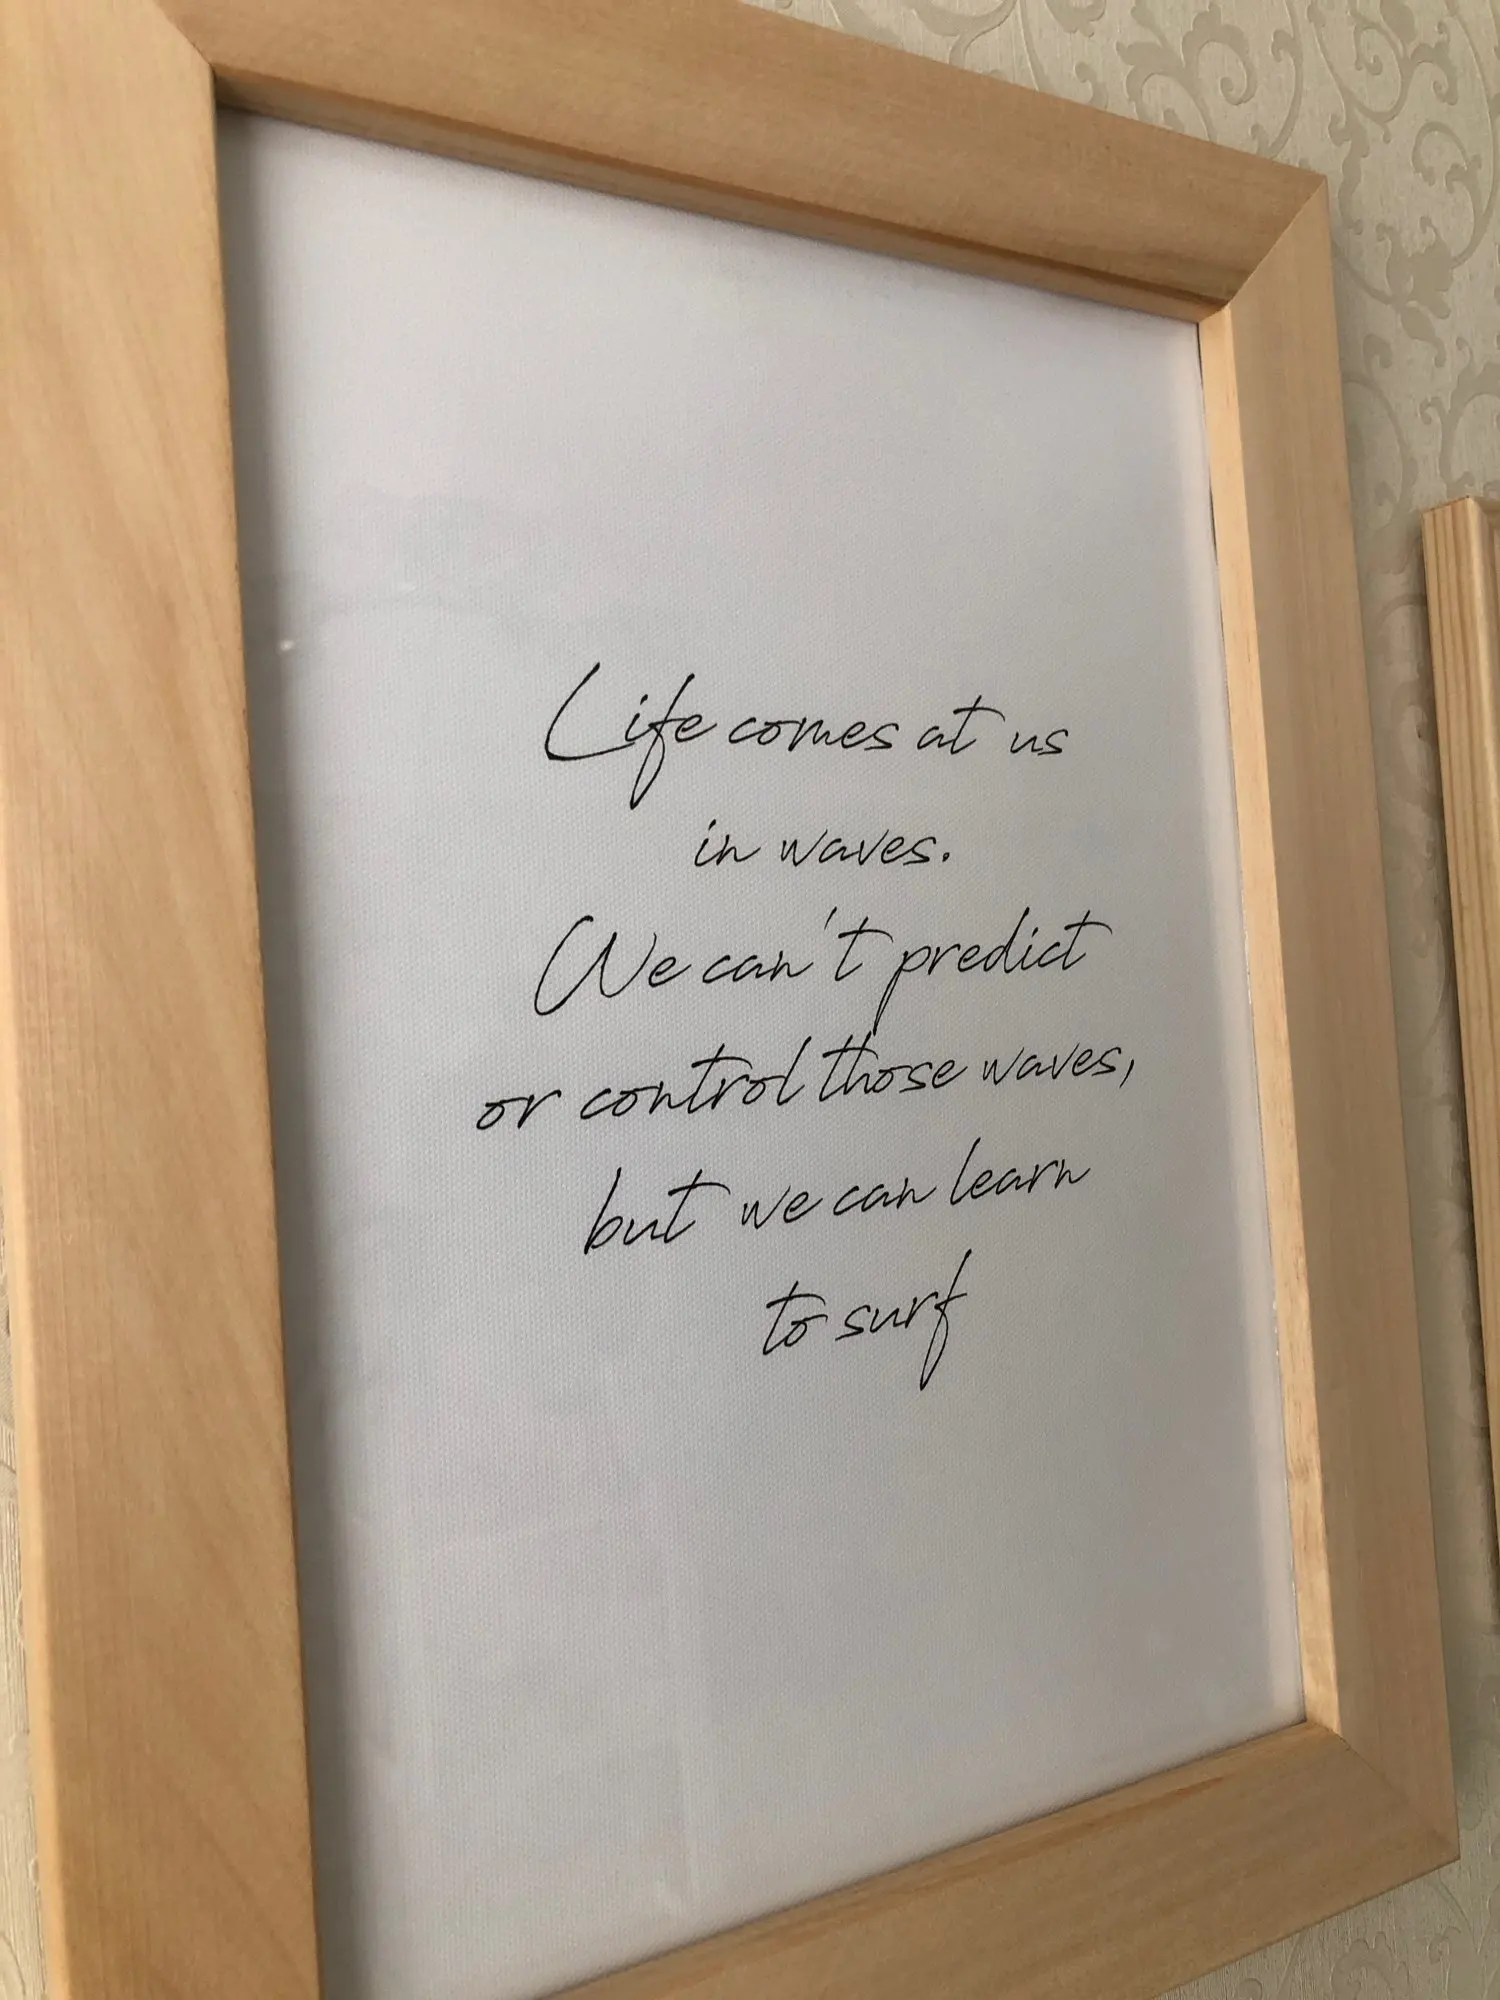 Life comes at us
in waves.
We can't predict
or control those waves,
but we can learn
to surf